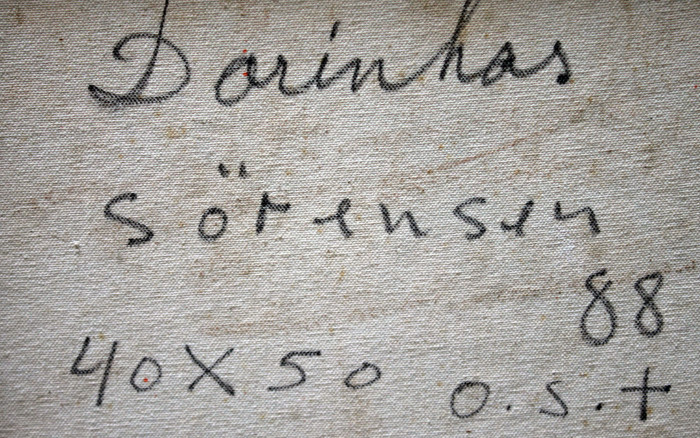 Dorinhas
Sörensen
88
40X50 o.s.t